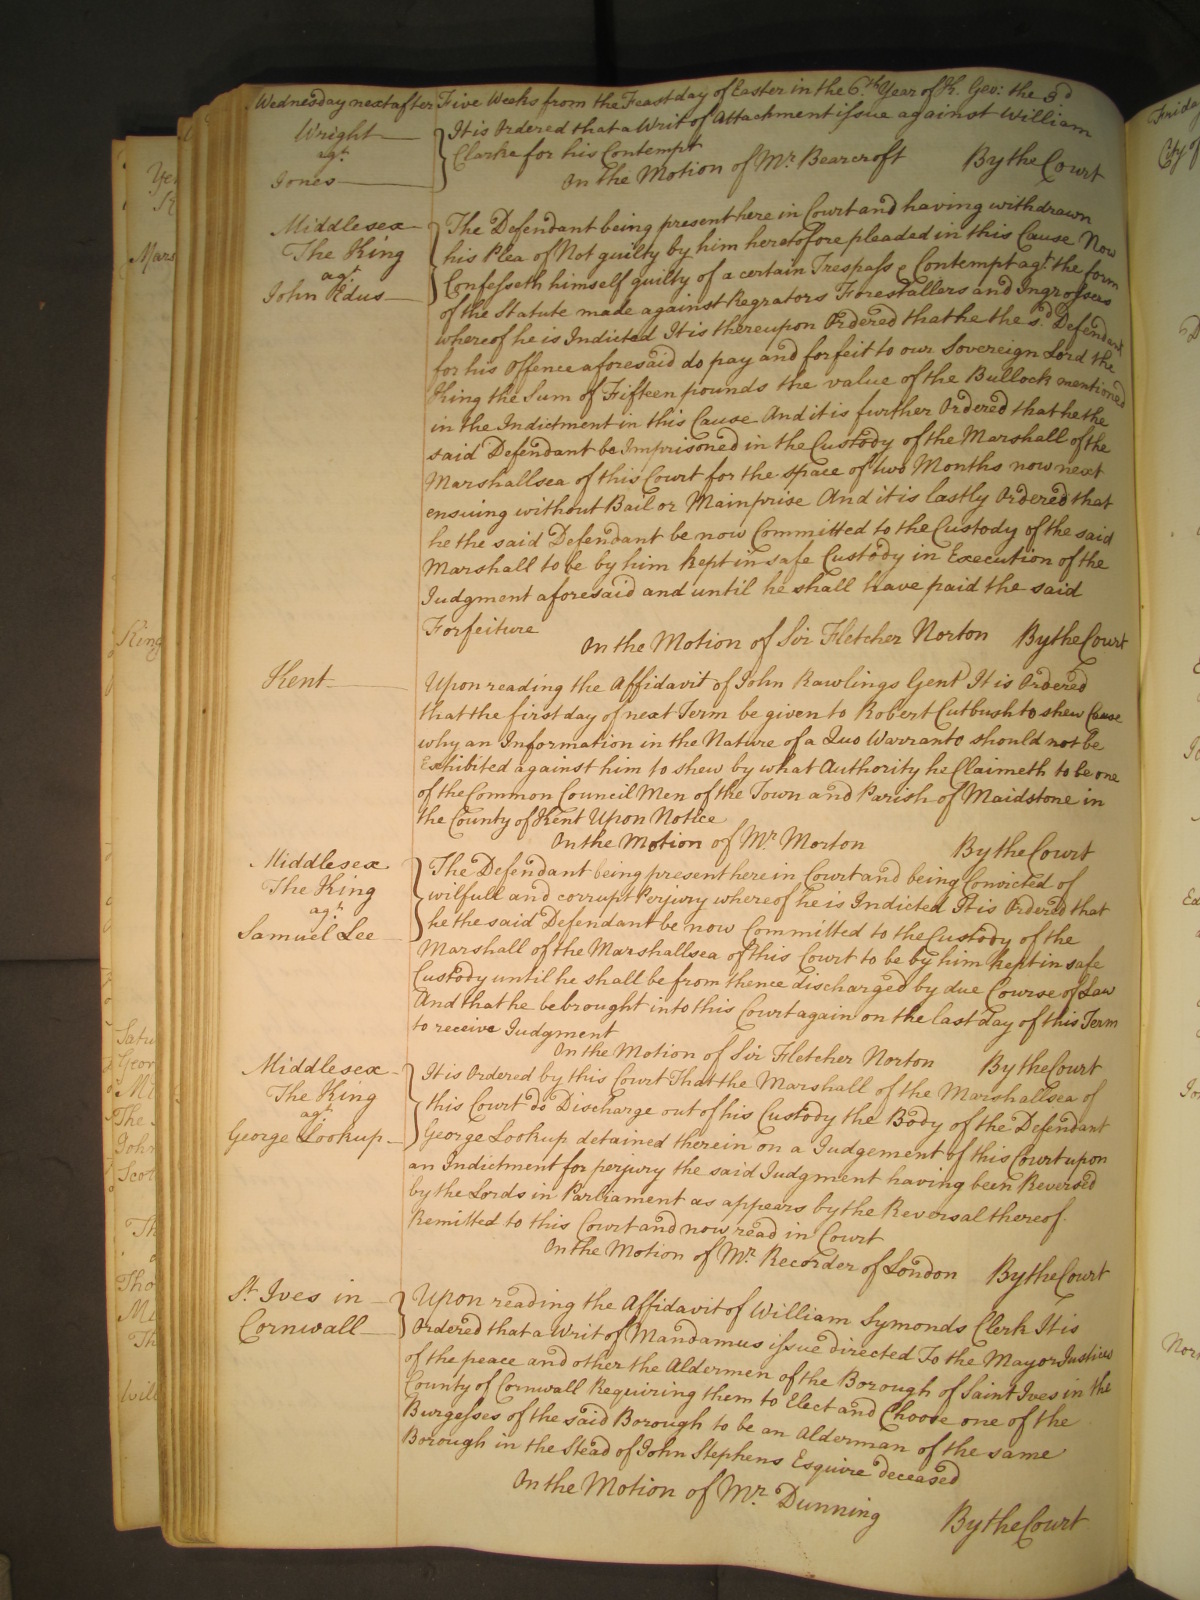 Wednesday next after Five Weeks from the Feast day of Easter in the 6.th Year of K. Geo: the 3d
Wright
agt.
Jones
It is Ordered that a Writ of Attachment issue against William
Clarke for his Contempt
On the Motion of Mr. Bearcroft By the Court
Middlesex
The King
agt.
John Edus
The Defendant being present here in Court and having withdrawn
his Plea of Not guilty by him heretofore pleaded in this Cause Now
Confesseth himself guilty of a certain Trespass & Contempt agt. the form
of the Statute made against Regrators Forestallers and Ingrossers
whereof he is Indicted It is thereupon Ordered that he the sd. Defendant
for his Offence aforesaid do pay and forfeit to our Sovereign Lord the
King the Sum of Fifteen pounds the value of the Bullock mentioned
in the Indictment in this Cause And it is further Ordered that he the
said Defendant be Imprisoned in the Custody of the Marshall of the
Marshallsea of this Court for the space of two Months now next
ensuing without Bail or Mainprise And it is lastly Ordered that
he the said Defendant be now Committed to the Custody of the said
Marshall to be by him kept in safe Custody in Execution of the
Judgment aforesaid and until he shall have paid the said
Forfeiture
On the Motion of Sir Fletcher Norton By the Court
Kent
Upon reading the Affidavit of John Rawlings Gent It is Ordered
that the first day of next Term be given to Robert Cutbush to shew Cause
why an Information in the Nature of a Quo Warranto should not be
Exhibited against him to shew by what Authority he Claimeth to be one
of the Common Council Men of the Town and Parish of Maidstone in
the County of Kent Upon Notice
On the Motion of Mr. Morton By the Court
Middlesex
The King
agt.
Samuel Lee
The Defendant being present here in Court and being Convicted of
wilfull and corrupt Perjury whereof he is Indicted It is Ordered that
he the said Defendant be now Committed to the Custody of the
Marshall of the Marshallsea of this Court to be by him kept in safe
Custody until he shall be from thence discharged by due Course of Law
And that he be brought into this Court again on the last day of this Term
to receive Judgment
On the Motion of Sir Fletcher Norton By the Court
Middlesex
The King
agt.
George Lookup
It is Ordered by this Court That the Marshall of the Marshallsea of
this Court do Discharge out of his Custody the Body of the Defendant
George Lookup detained therein on a Judgement of this Court upon
an Indictment for perjury the said Judgment having been Reversed
by the Lords in Parliament as appears by the Reversal thereof
Remitted to this Court and now read in Court
On the Motion of Mr. Recorder of London By the Court
St. Ives in
Cornwall
Upon reading the Affidavit of William Symonds Clerk It is
Ordered that a Writ of Mandamus issue directed To the Mayor Justices
of the peace and other the Aldermen of the Borough of Saint Ives in the
County of Cornwall Requiring them to Elect and Choose one of the
Burgesses of the said Borough to be an Alderman of the same
Borough in the Stead of John Stephens Esquire deceased
On the Motion of Mr. Dunning By the Court